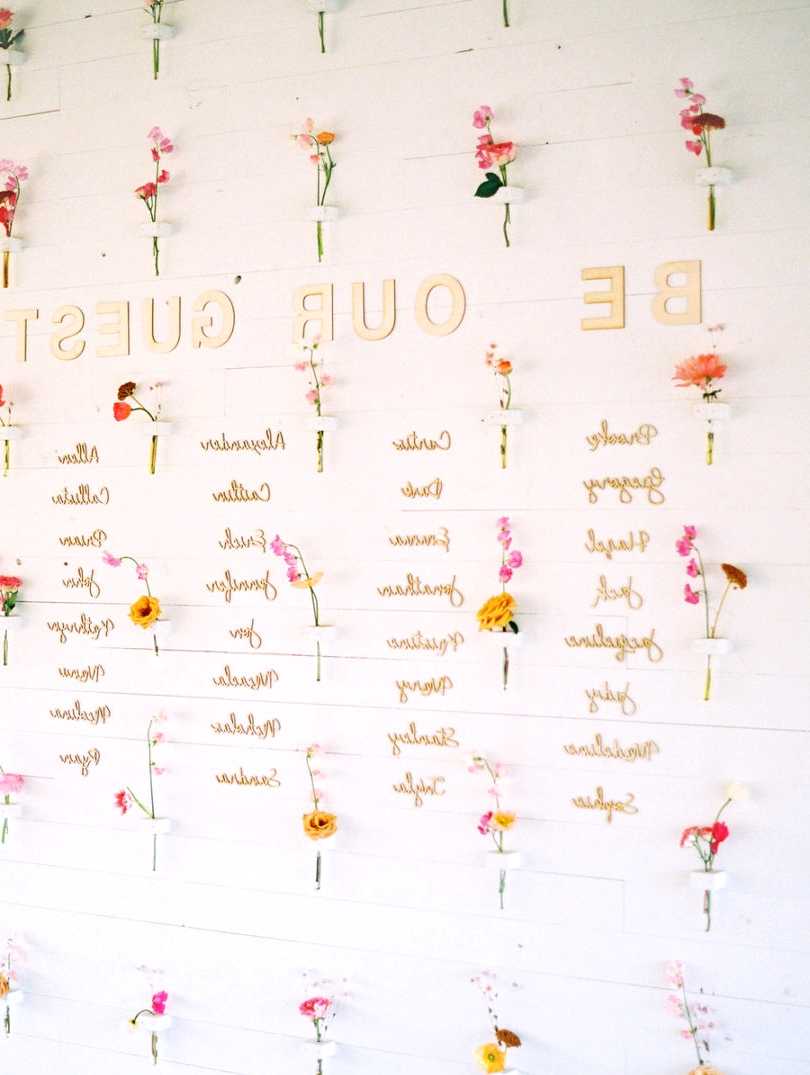 BE OUR GUEST
Brooke
Gregory
Hazel
Jack
Jacqueline
Judy
Madelina
Sophia
Curtis
Emma
Jonathan
Kristine
Mary
Stanley
Twyla
Alexander
Caitlin
Erich
Jennifer
Jon
Micaela
Nicholas
Sandra
Allen
Callista
Brian
John
Kathryn
Nana
Ryan